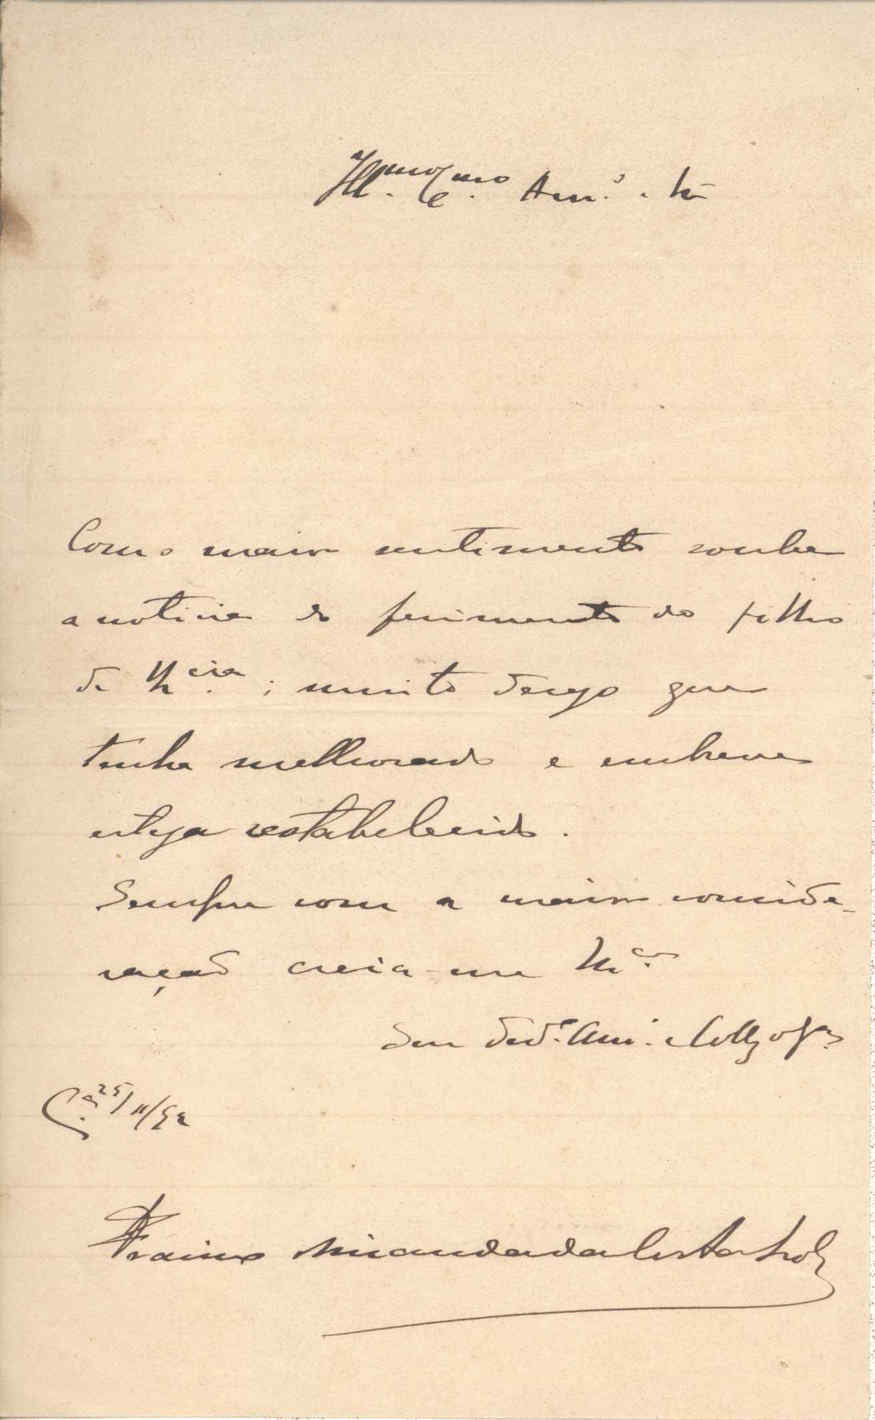 Ill.mo Ex.mo Am.o e Sr.
Com o maior sentimento soube
a noticia do ferimento do filho
de V.cia ; muito desejo que
tenha melhorado e em breve
esteja restabelecido.
Sempre com a maior conside-
ração creia-me
Seu Ded.o Am.o e Coll.
C.a 25/11/92
Miranda da Costa Lobo